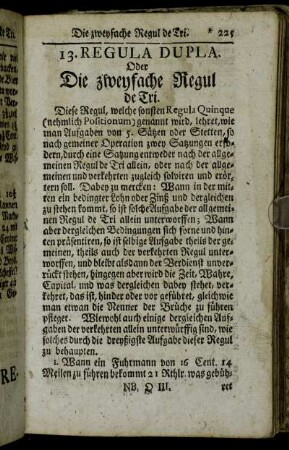 Die zweyfache Regul de Tri. 225
13. REGULA DUPLA.
Oder
Die zweyfache Regul
de Tri.
Diese Regul, welche sonsten Regula Quinque
(nehmlich Positionum) genannt wird, lehret, wie
man Aufgaben von 5. Sätzen oder Stetten, so
nach gemeiner Operation zwey Satzungen erfo-
dern, durch eine Satzung entweder nach der allge-
meinen Regul de Tri allein, oder nach der allge-
meinen und verkehrten zugleich solviren und erör-
tern soll. Dabey zu mercken: Wann in der mit-
ten ein bedingter Lohn oder Zinß und dergleichen
zu stehen kommt, so ist solche Aufgabe der allgemei-
nen Regul de Tri allein unterworffen; Wann
aber dergleichen Bedingungen sich forne und hin-
ten präsentiren, so ist selbige Aufgabe theils der ge-
meinen, theils auch der verkehrten Regul unter-
worffen, und bleibt alsdann der Verdienst unver-
rückt stehen, hingegen aber wird die Zeit, Wahre,
Capital, und was dergleichen dabey stehet, ver-
kehret, das ist, hinder oder vor geführet, gleichwie
man etwan die Nenner der Brüche zu führen
pfleget. Wiewohl auch einige dergleichen Auf-
gaben der verkehrten allein unterwürffig sind, wie
solches durch die dreyßigste Aufgabe dieser Regul
zu behaupten.
1. Wann ein Fuhrmann von 16 Cent. 14
Meilen zu führen bekommt 21 Rthlr. was gebüh-
NB. Q III. ret